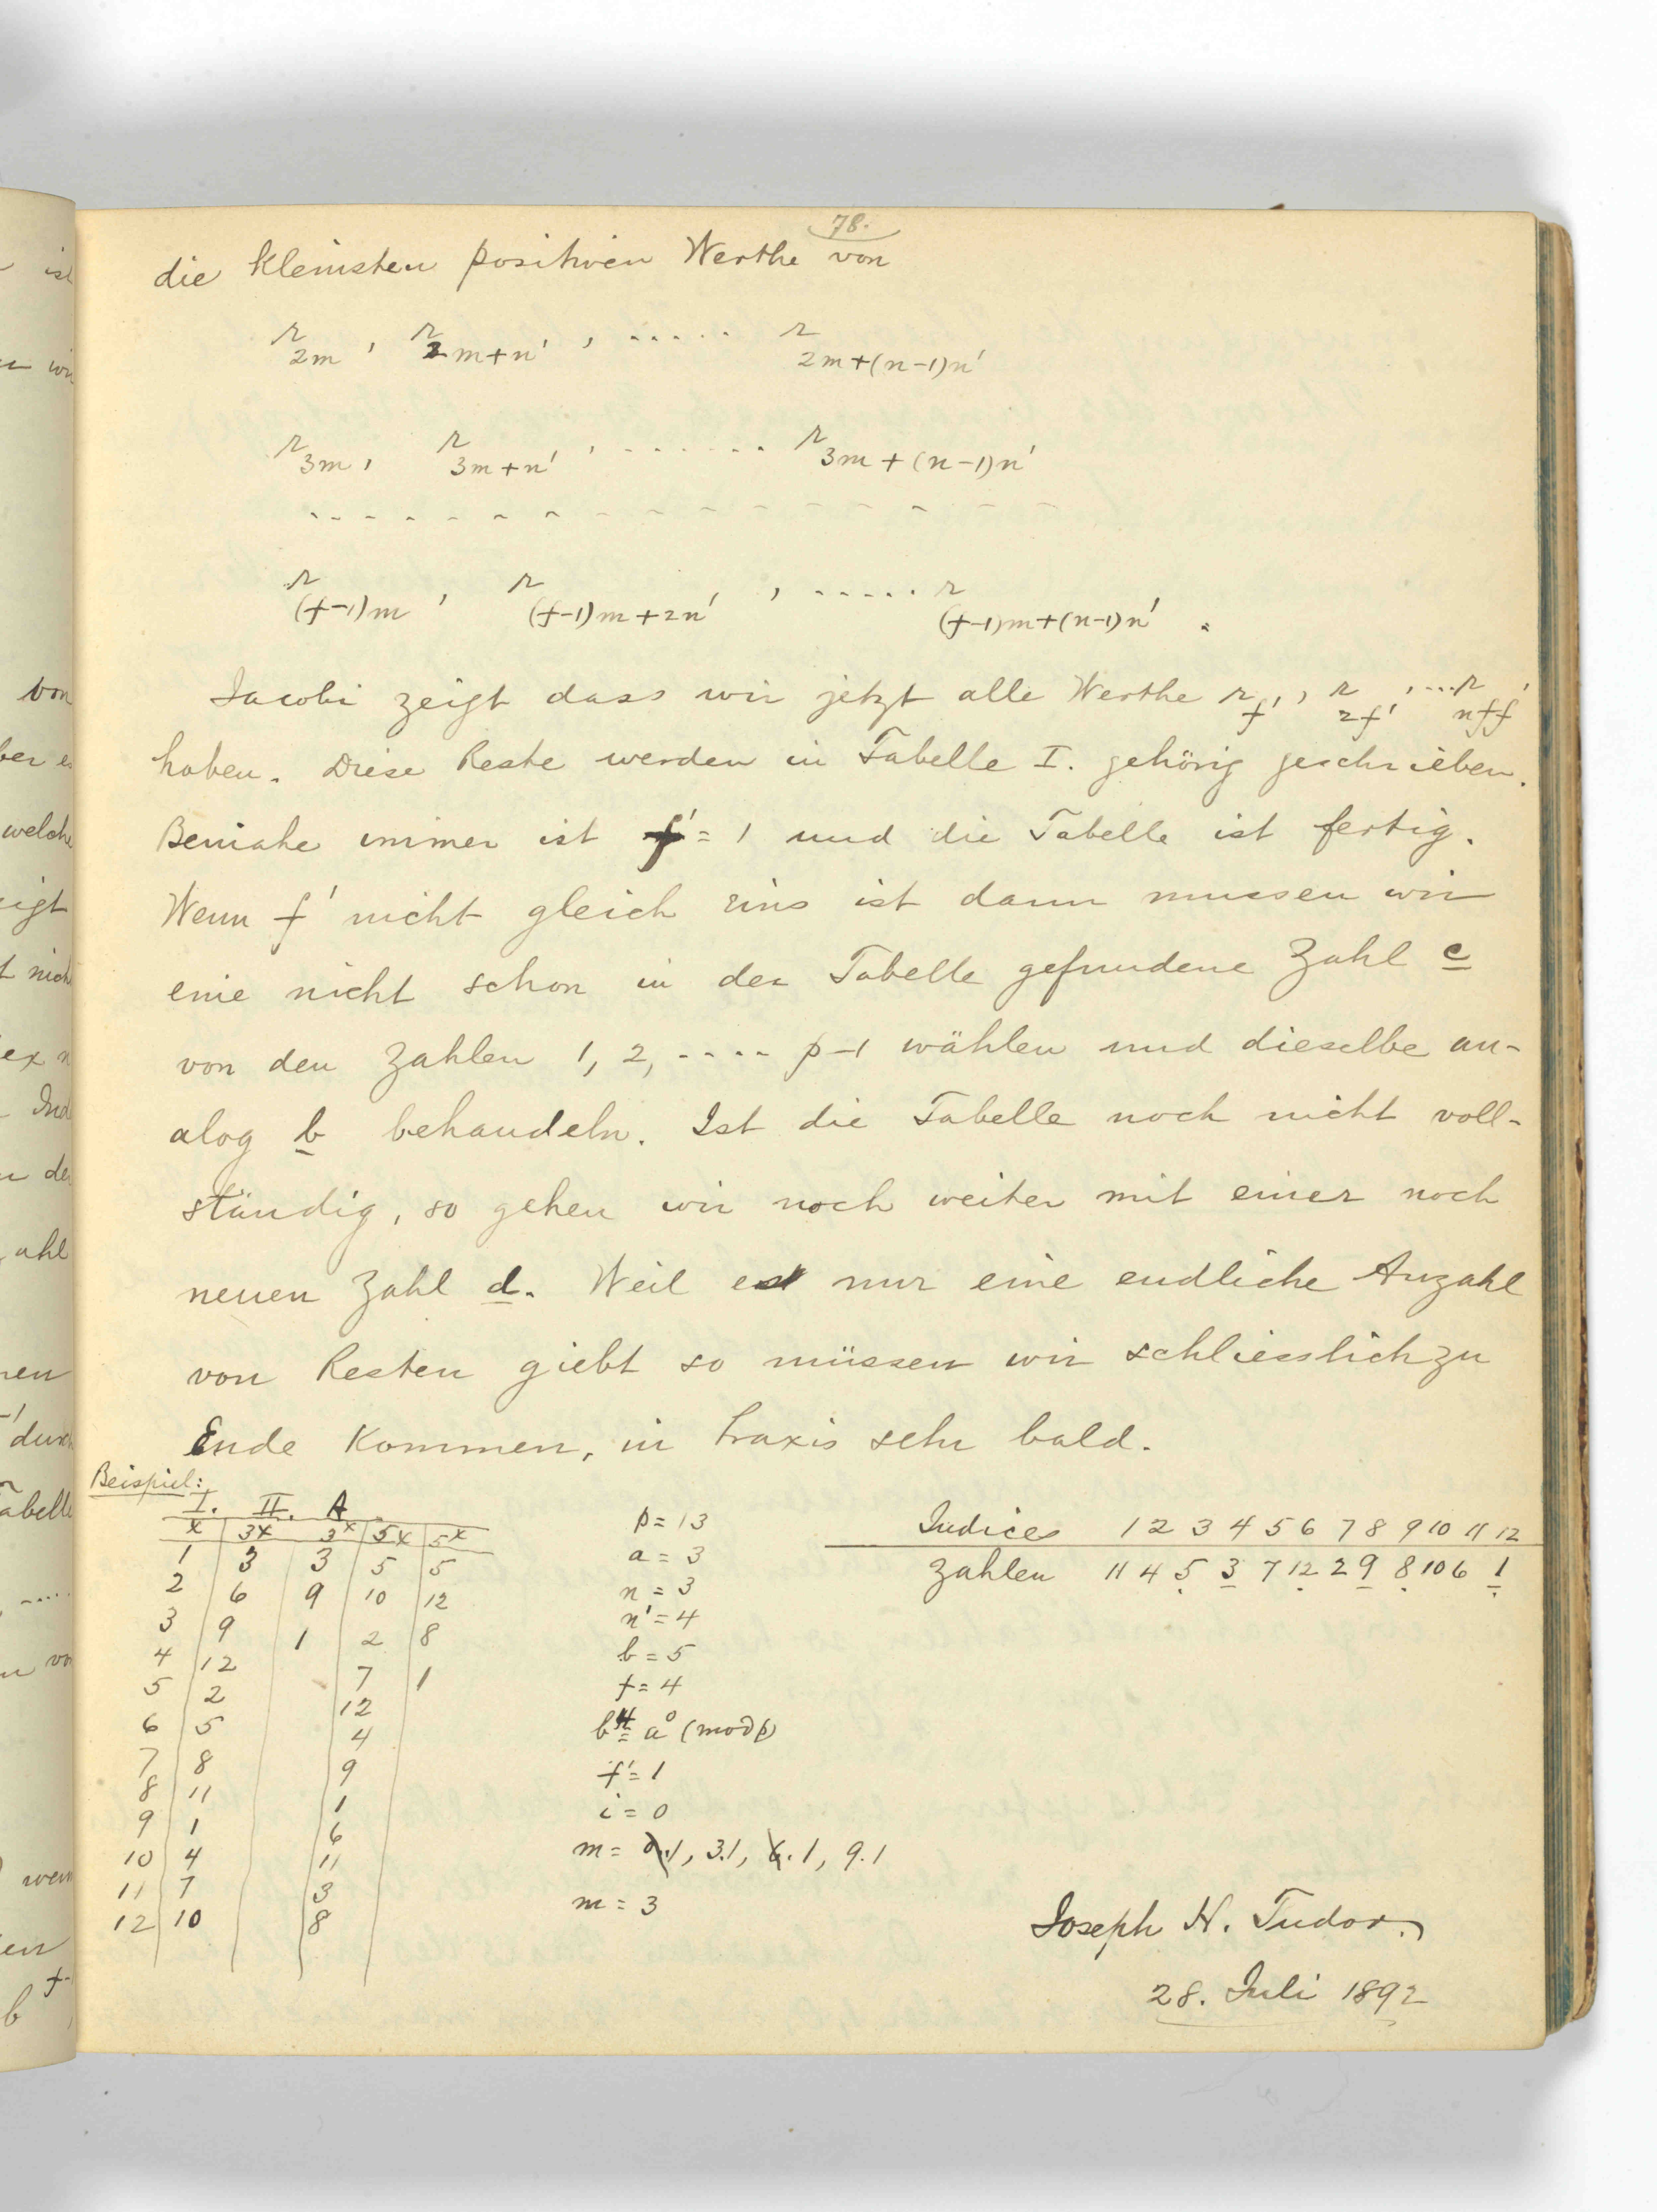 78.
die kleinsten positiven Werthe von
r2m , r2m+n' , ..... r2m+(n-1)n'
r3m , r3m+n' , ....... r3m+(n-1)n'
- - - - - - - - - - - - - - - - - -
r(f-1)m , r(f-1)m+2n' , ..... r(f-1)m+(n-1)n' .
Jacobi zeigt dass wir jetzt alle Werthe rf' , r2f' , ... rnff'
haben. Diese Reste werden in Tabelle I. gehörig geschrieben.
Beinahe immer ist f' = 1 und die Tabelle ist fertig.
Wenn f' nicht gleich eins ist dann mussen wir
eine nicht schon in der Tabelle gefundene Zahl c
von den Zahlen 1, 2, .... p-1 wählen und dieselbe an-
alog b behandeln. Ist die Tabelle noch nicht voll-
ständig, so gehen wir noch weiter mit einer noch
neuen Zahl d. Weil es nur eine endliche Anzahl
von Resten giebt so müssen wir schliesslich zu
Ende kommen, in Praxis sehr bald.
Beispiel:
I. II. A
x 3x 3^x 5x 5^x
1 3 3 5 5
2 6 9 10 12
3 9 1 2 8
4 12 7 1
5 2 12
6 5 4
7 8 9
8 11 1
9 1 6
10 4 11
11 7 3
12 10 8
p = 13
a = 3
n = 3
n' = 4
b = 5
f = 4
b^4 = a^0 (mod p)
f' = 1
i = 0
m = 0.1, 3.1, 6.1, 9.1
m = 3
Indices 1 2 3 4 5 6 7 8 9 10 11 12
Zahlen 11 4 5 3 7 12 2 9 8 10 6 1
Joseph H. Tudor.
28. Juli 1892